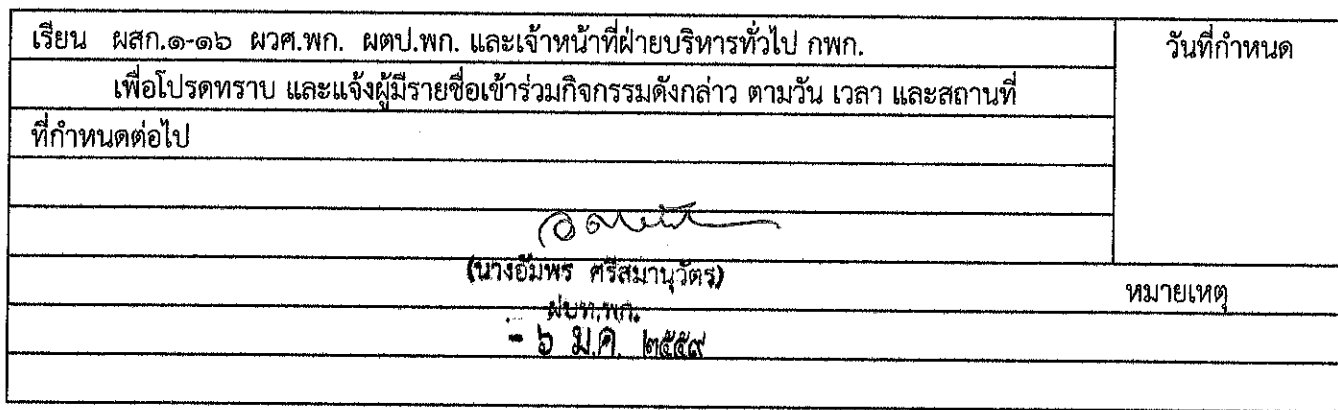 เรียน ผสก.๑-๑๖ ผวศ.พก. ผตป.พก. และเจ้าหน้าที่ฝ่ายบริหารทั่วไป กพก.
วันที่กำหนด
เพื่อโปรดทราบ และแจ้งผู้มีรายชื่อเข้าร่วมกิจกรรมดังกล่าว ตามวัน เวลา และสถานที่
ที่กำหนดต่อไป
(นางอัมพร ศรีสมานุวัตร)
หมายเหตุ
ฝบท.พก.
- ๖ ม.ค. ๒๕๕๙